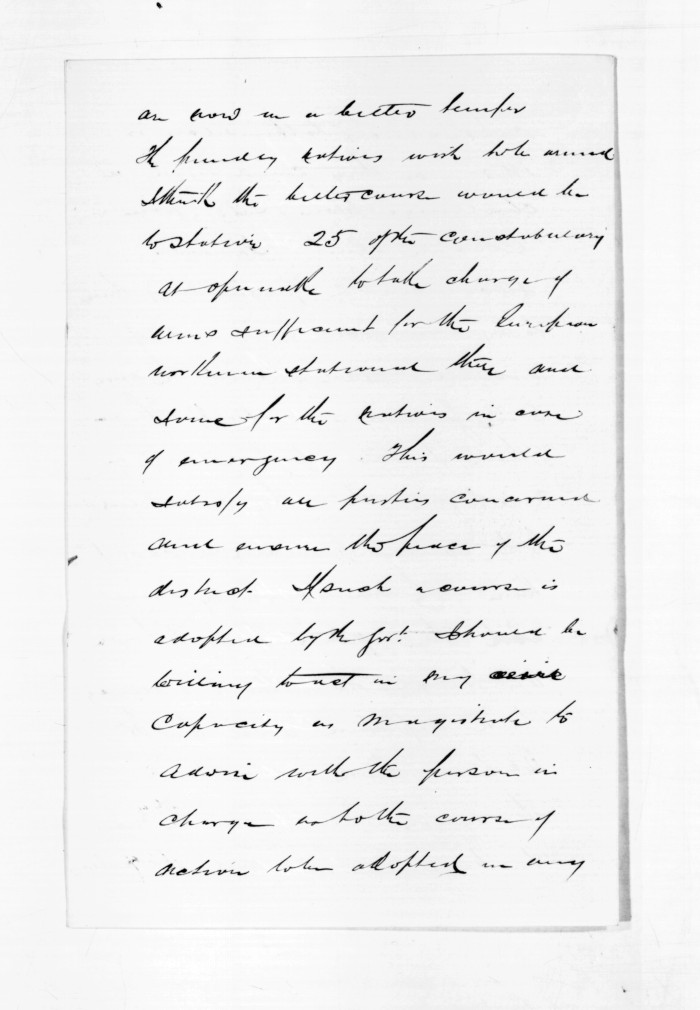 are now in a better temper
The friendly natives wish to be armed
I think the better course would be
to station 25 of the constabulary
at Opunake to take charge of
arms sufficient for the European
workmen stationed there and
some for the natives in case
of emergency. This would
satisfy all parties concerned
and ensure the peace of the
district. If such a course is
adopted by the Govt. I should be
willing to act in my civil
capacity as magistrate to
advise with the person in
charge as to the course of
action to be adopted in any